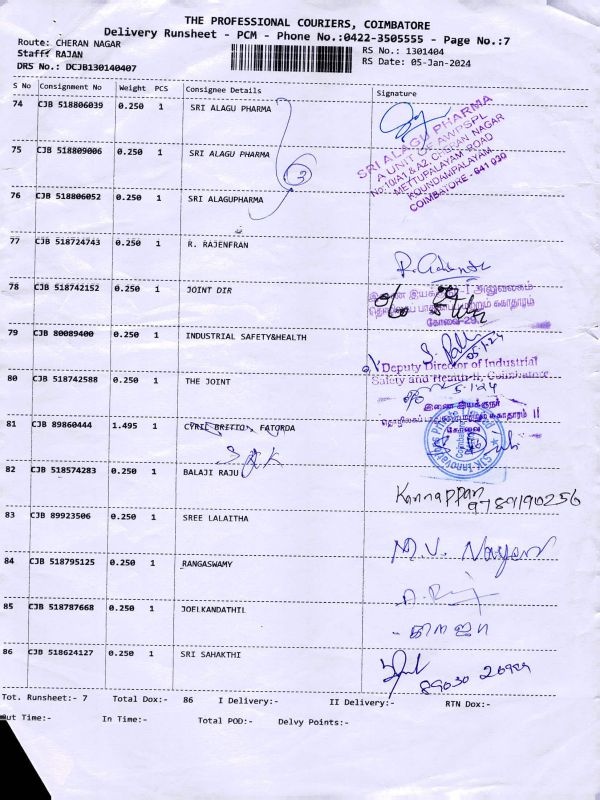 THE PROFESSIONAL COURIERS, COIMBATORE
Delivery Runsheet - PCM - Phone No.:0422-3505555 - Page No.:7
Route: CHERAN NAGAR
RS No.: 1301404
Staff: RAJAN
RS Date: 05-Jan-2024
DRS No.: DCJB130140407
S No Consignment No Weight PCS Consignee Details Signature
74 CJB 518806039 0.250 1 SRI ALAGU PHARMA
SRI ALAGU PHARMA
A UNIT OF AWPSPL
No:10/A1 & A2, CHERAN NAGAR
METTUPALAYAM ROAD
KOUNDAMPALAYAM,
COIMBATORE - 641 030
75 CJB 518809006 0.250 1 SRI ALAGU PHARMA
3
76 CJB 518806052 0.250 1 SRI ALAGUPHARMA
77 CJB 518724743 0.250 1 R. RAJENFRAN
78 CJB 518742152 0.250 1 JOINT DIR
79 CJB 80089400 0.250 1 INDUSTRIAL SAFETY&HEALTH
05.1.24
Deputy Director of Industrial
Safety and Health-II, Coimbatore
80 CJB 518742588 0.250 1 THE JOINT
5.1.24
இணை இயக்குநர்
கோவை
81 CJB 89860444 1.495 1 CYRIL BRITTO FATORDA
SJK
82 CJB 518574283 0.250 1 BALAJI RAJU
Kannappan
9789190256
83 CJB 89923506 0.250 1 SREE LALAITHA
M.V. Nayen
84 CJB 518795125 0.250 1 RANGASWAMY
85 CJB 518787668 0.250 1 JOELKANDATHIL
86 CJB 518624127 0.250 1 SRI SAHAKTHI
Tot. Runsheet:- 7 Total Dox:- 86 I Delivery:- II Delivery:- RTN Dox:-
Out Time:- In Time:- Total POD:- Delvy Points:-